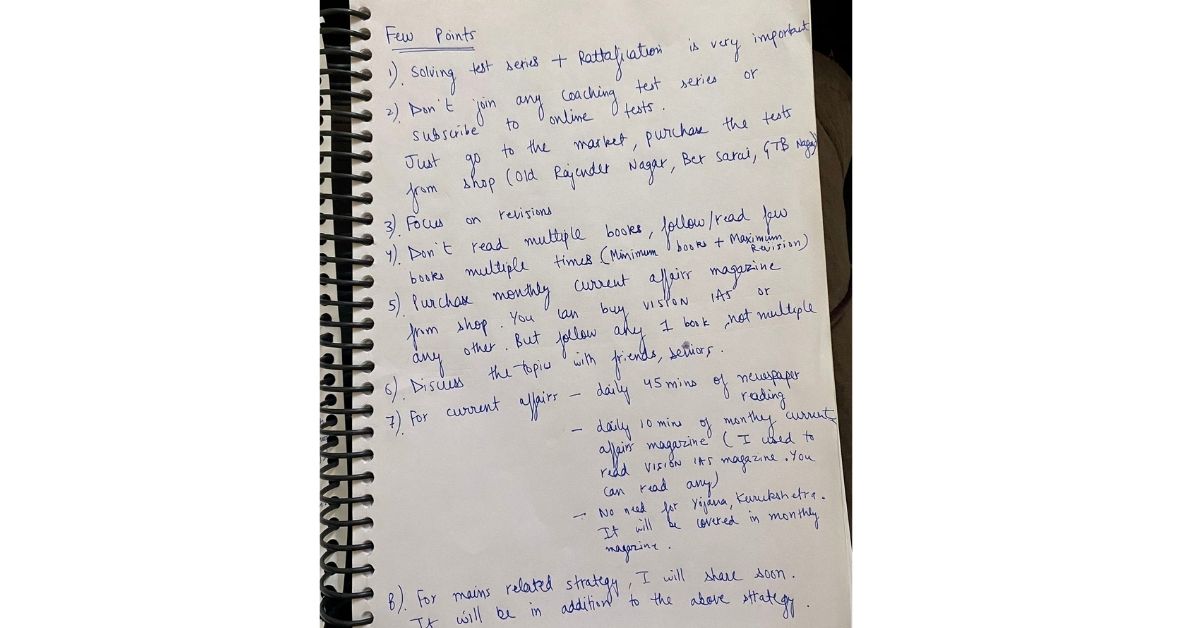 Few Points
1). Solving test series + Rattafication is very important
2) Don't join any coaching test series or
subscribe to online tests.
Just go to the market, purchase the tests
from shop (Old Rajender Nagar, Ber Sarai, GTB Nagar)
3). Focus on revisions
4). Don't read multiple books, follow/read few
books multiple times (Minimum books + Maximum
Revision)
5). Purchase monthly current affairs magazine
from shop. You can buy VISION IAS or
any other. But follow any 1 book, not multiple
6). Discuss the topic with friends, seniors.
7). For current affairs – daily 45 mins of newspaper
reading
– daily 10 mins of monthly current
affairs magazine (I used to
read VISION IAS magazine. You
can read any)
– No need for Yojana, Kurukshetra.
It will be covered in monthly
magazine.
8). For mains related strategy, I will share soon.
It will be in addition to the above strategy.